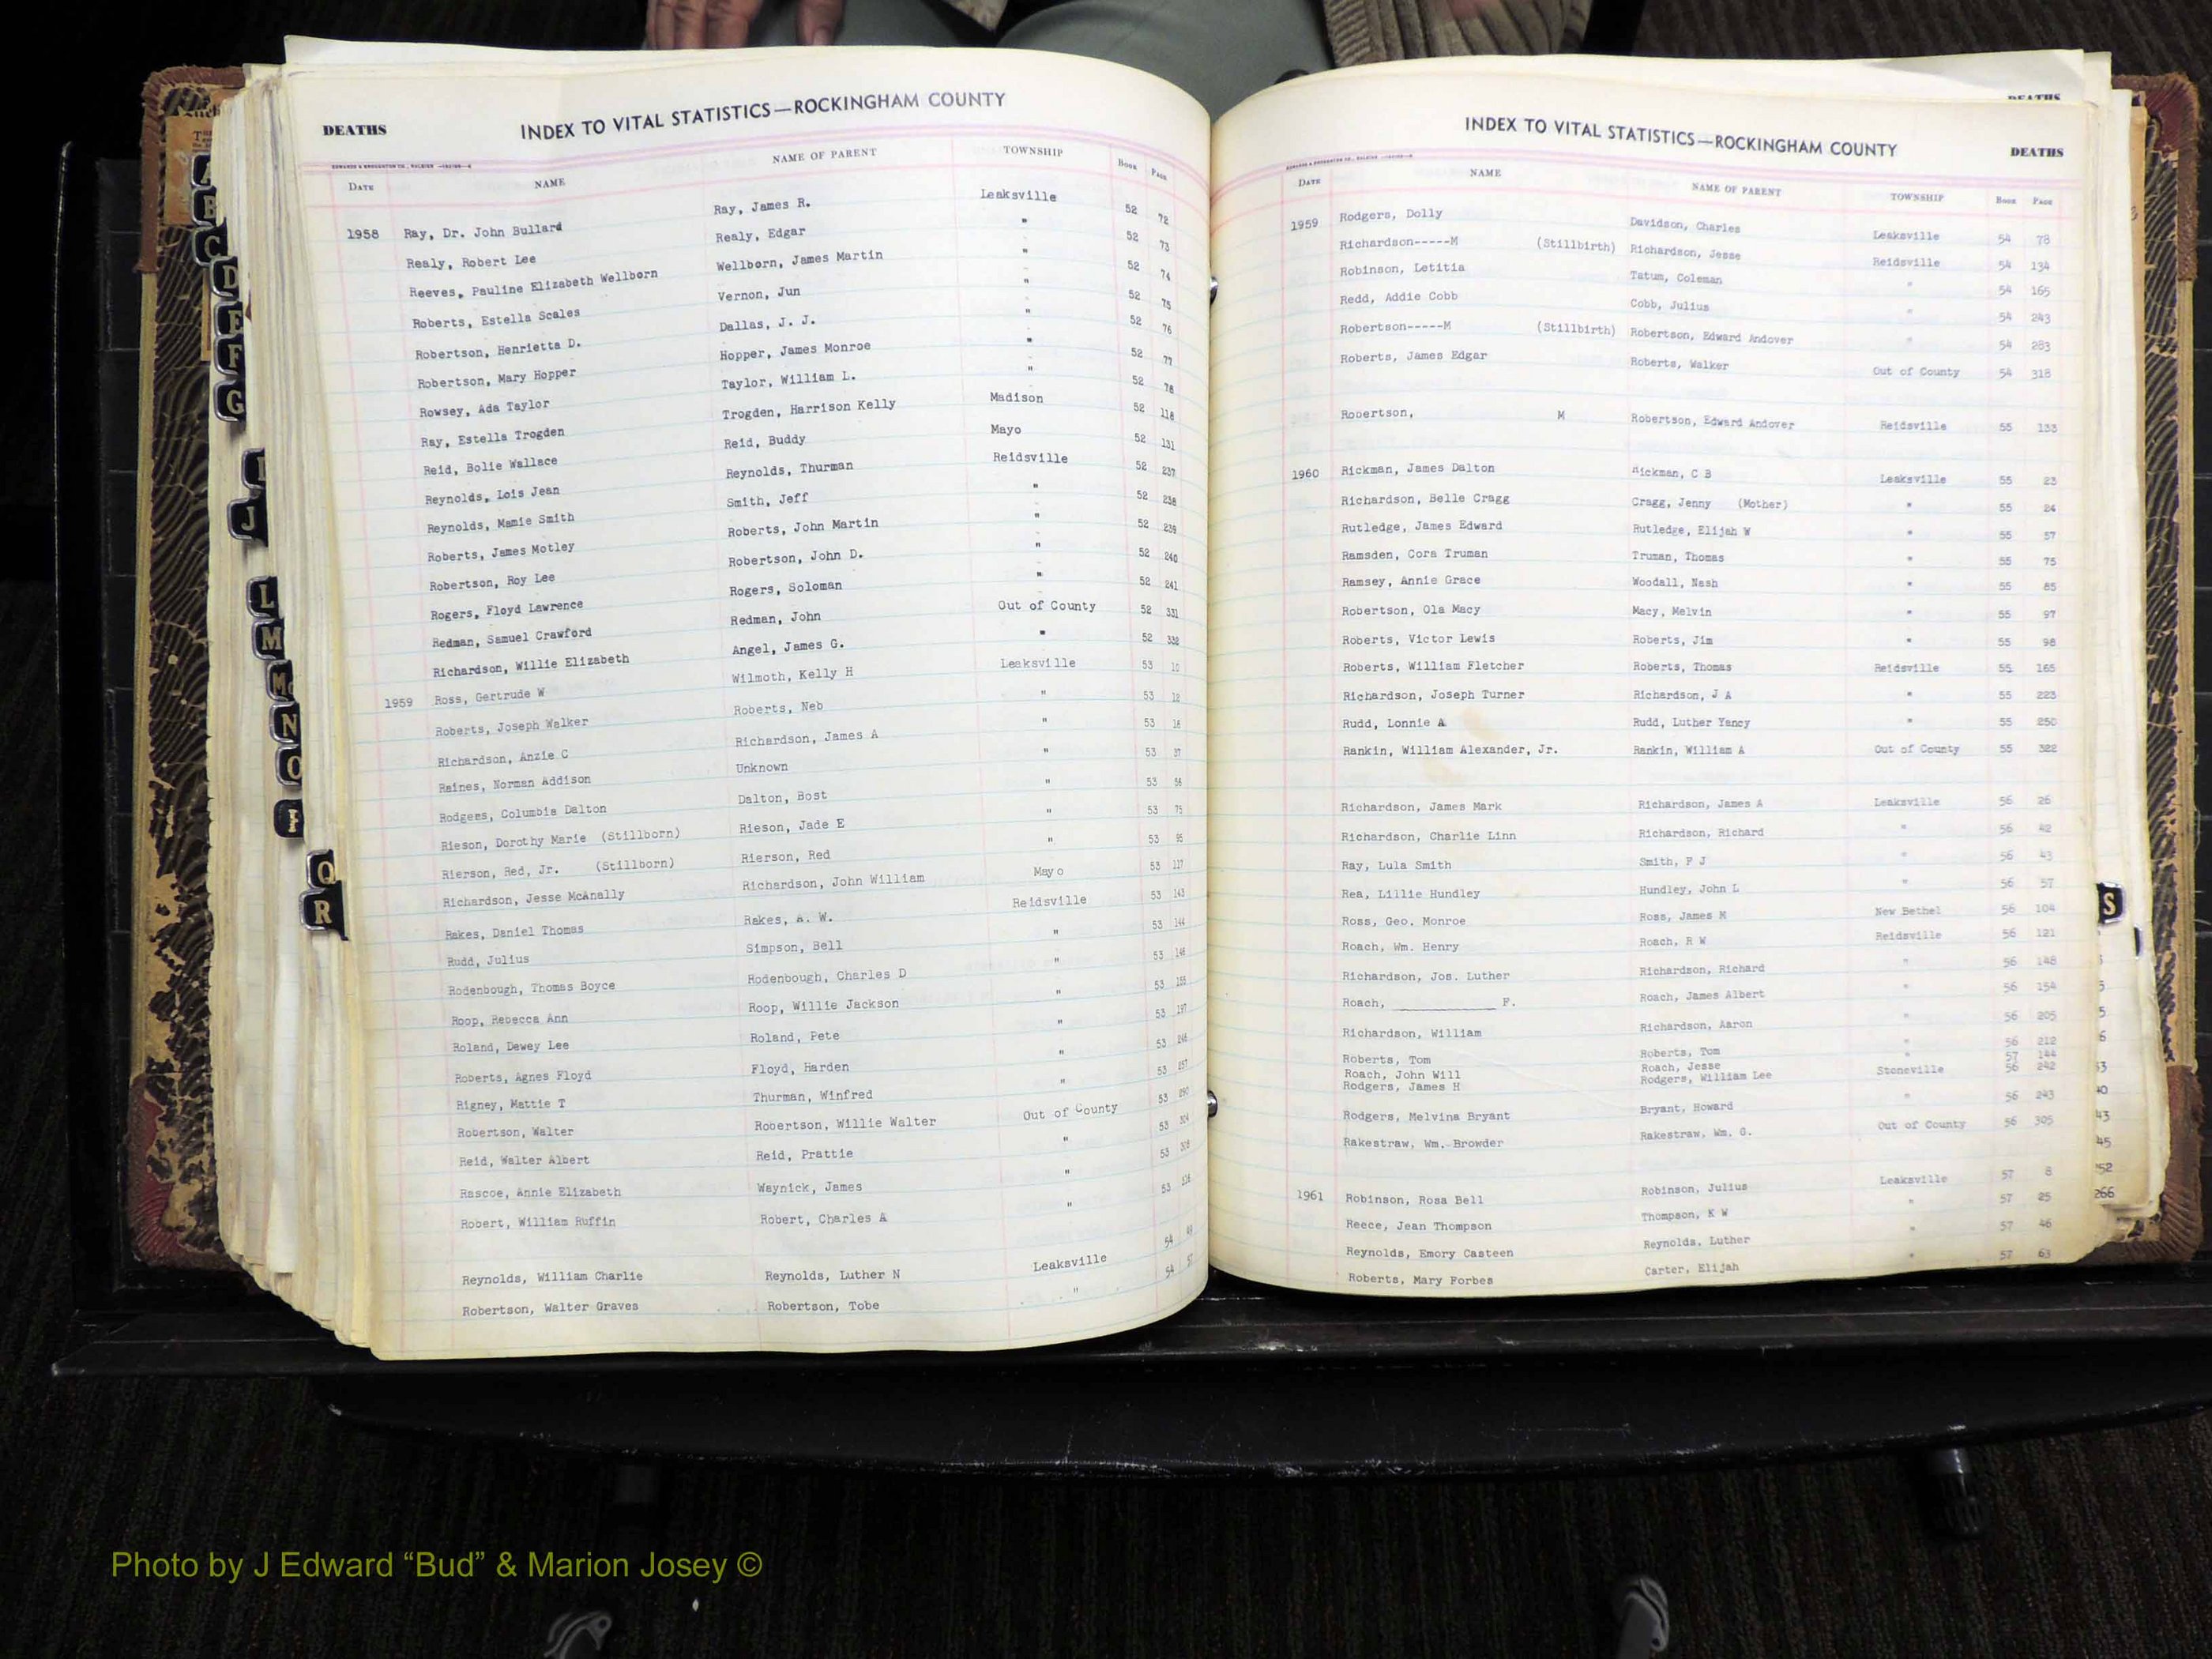 DEATHS INDEX TO VITAL STATISTICS—ROCKINGHAM COUNTY
DATE NAME NAME OF PARENT TOWNSHIP BOOK PAGE
1958 Ray, Dr. John Bullard Ray, James R. Leaksville 52 72
Realy, Robert Lee Realy, Edgar " 52 73
Reeves, Pauline Elizabeth Wellborn Wellborn, James Martin " 52 74
Roberts, Estella Scales Vernon, Jun " 52 75
Robertson, Henrietta D. Dallas, J. J. " 52 76
Robertson, Mary Hopper Hopper, James Monroe " 52 77
Rowsey, Ada Taylor Taylor, William L. " 52 78
Ray, Estella Trogden Trogden, Harrison Kelly Madison 52 118
Reid, Bolie Wallace Reid, Buddy Mayo 52 131
Reynolds, Lois Jean Reynolds, Thurman Reidsville 52 237
Reynolds, Mamie Smith Smith, Jeff " 52 238
Roberts, James Motley Roberts, John Martin " 52 239
Robertson, Roy Lee Robertson, John D. " 52 240
Rogers, Floyd Lawrence Rogers, Soloman " 52 241
Redman, Samuel Crawford Redman, John Out of County 52 331
Richardson, Willie Elizabeth Angel, James G. " 52 332
1959 Ross, Gertrude W Wilmoth, Kelly H Leaksville 53 10
Roberts, Joseph Walker Roberts, Neb " 53 12
Richardson, Anzie C Richardson, James A " 53 18
Raines, Norman Addison Unknown " 53 37
Rodgers, Columbia Dalton Dalton, Bost " 53
Rieson, Dorothy Marie (Stillborn) Rieson, Jade E " 53 75
Rierson, Red, Jr. (Stillborn) Rierson, Red " 53 95
Richardson, Jesse McAnally Richardson, John William Mayo 53 117
Rakes, Daniel Thomas Rakes, A. W. Reidsville 53 143
Rudd, Julius Simpson, Bell " 53 144
Rodenbough, Thomas Boyce Rodenbough, Charles D " 53 148
Roop, Rebecca Ann Roop, Willie Jackson " 53
Roland, Dewey Lee Roland, Pete " 53 197
Roberts, Agnes Floyd Floyd, Harden " 53
Rigney, Mattie T Thurman, Winfred " 53 257
Robertson, Walter Robertson, Willie Walter Out of County 53
Reid, Walter Albert Reid, Prattie " 53 304
Rascoe, Annie Elizabeth Waynick, James " 53
Robert, William Ruffin Robert, Charles A " 53
Reynolds, William Charlie Reynolds, Luther N Leaksville 54
Robertson, Walter Graves Robertson, Tobe " 54
A
B
C
D
E
F
G
I
J
L
M
Mc
N
O
Q
R
DEATHS
INDEX TO VITAL STATISTICS—ROCKINGHAM COUNTY DEATHS
DATE NAME NAME OF PARENT TOWNSHIP BOOK PAGE
1959 Rodgers, Dolly Davidson, Charles Leaksville 54 78
Richardson-----M (Stillbirth) Richardson, Jesse Reidsville 54 134
Robinson, Letitia Tatum, Coleman " 54 165
Redd, Addie Cobb Cobb, Julius " 54 243
Robertson-----M (Stillbirth) Robertson, Edward Andover " 54 283
Roberts, James Edgar Roberts, Walker Out of County 54 318
Robertson, M Robertson, Edward Andover Reidsville 55 133
1960 Rickman, James Dalton Rickman, C B Leaksville 55 23
Richardson, Belle Cragg Cragg, Jenny (Mother) " 55 24
Rutledge, James Edward Rutledge, Elijah W " 55 57
Ramsden, Cora Truman Truman, Thomas " 55 75
Ramsey, Annie Grace Woodall, Nash " 55 85
Robertson, Ola Macy Macy, Melvin " 55 97
Roberts, Victor Lewis Roberts, Jim " 55 98
Roberts, William Fletcher Roberts, Thomas Reidsville 55 165
Richardson, Joseph Turner Richardson, J A " 55 223
Rudd, Lonnie A Rudd, Luther Yancy " 55 250
Rankin, William Alexander, Jr. Rankin, William A Out of County 55 322
Richardson, James Mark Richardson, James A Leaksville 56 26
Richardson, Charlie Linn Richardson, Richard " 56 42
Ray, Lula Smith Smith, F J " 56 43
Rea, Lillie Hundley Hundley, John L " 56 57
Ross, Geo. Monroe Ross, James M New Bethel 56 104
Roach, Wm. Henry Roach, R W Reidsville 56 121
Richardson, Jos. Luther Richardson, Richard " 56 148
Roach, __________ F. Roach, James Albert " 56 154
Richardson, William Richardson, Aaron " 56 205
Roberts, Tom Roberts, Tom " 56 212
Roach, John Will Roach, Jesse " 57 144
Rodgers, James H Rodgers, William Lee Stoneville 56 242
Rodgers, Melvina Bryant Bryant, Howard " 56 243
Rakestraw, Wm. Browder Rakestraw, Wm. G. Out of County 56 305
1961 Robinson, Rosa Bell Robinson, Julius Leaksville 57 8
Reece, Jean Thompson Thompson, K W " 57 25
Reynolds, Emory Casteen Reynolds, Luther " 57 46
Roberts, Mary Forbes Carter, Elijah " 57 63
S
266
Photo by J Edward “Bud” & Marion Josey ©